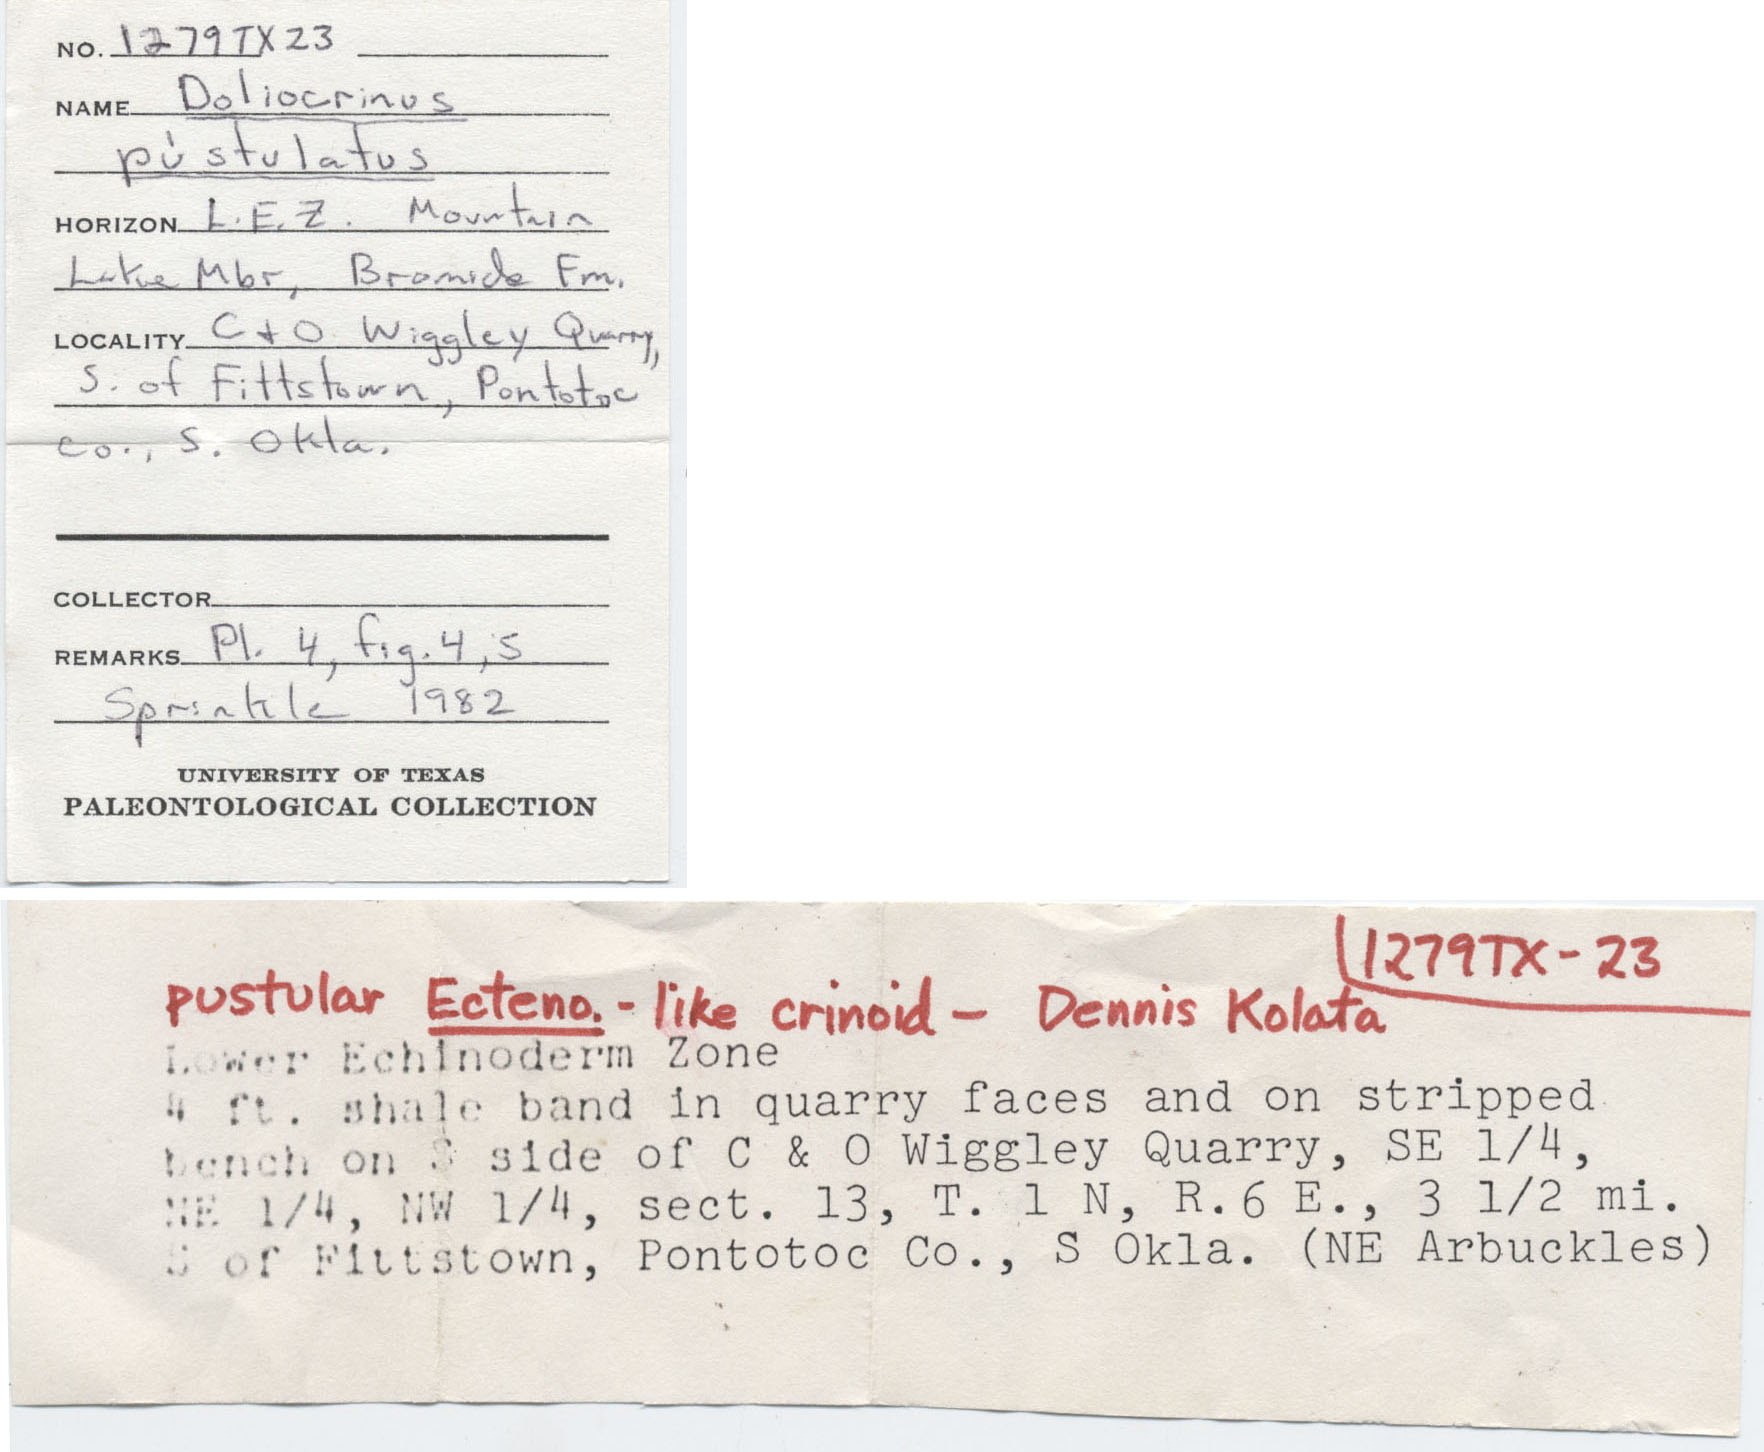 NO. 1279TX23
NAME Doliocrinus
pustulatus
HORIZON L.E.Z. Mountain
Lake Mbr, Bromide Fm.
LOCALITY C + O Wiggley Quarry,
S. of Fittstown, Pontotoc
Co., S. Okla.
COLLECTOR
REMARKS Pl. 4, fig. 4,5
Sprinkle 1982
UNIVERSITY OF TEXAS
PALEONTOLOGICAL COLLECTION
1279TX-23
pustular Ecteno.-like crinoid — Dennis Kolata
Lower Echinoderm Zone
4 ft. shale band in quarry faces and on stripped
bench on S side of C & O Wiggley Quarry, SE 1/4,
NE 1/4, NW 1/4, sect. 13, T. 1 N, R.6 E., 3 1/2 mi.
S of Fittstown, Pontotoc Co., S Okla. (NE Arbuckles)